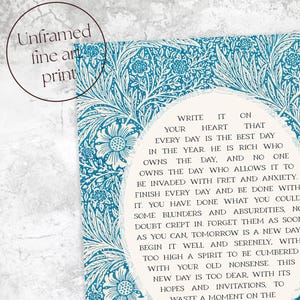 Unframed
fine art
print
WRITE IT ON
YOUR HEART THAT
EVERY DAY IS THE BEST DAY
IN THE YEAR. HE IS RICH WHO
OWNS THE DAY, AND NO ONE
OWNS THE DAY WHO ALLOWS IT TO
BE INVADED WITH FRET AND ANXIETY.
FINISH EVERY DAY AND BE DONE WITH
IT. YOU HAVE DONE WHAT YOU COULD
SOME BLUNDERS AND ABSURDITIES, NO
DOUBT CREPT IN. FORGET THEM AS SOON
AS YOU CAN, TOMORROW IS A NEW DAY
BEGIN IT WELL AND SERENELY, WITH
TOO HIGH A SPIRIT TO BE CUMBERED
WITH YOUR OLD NONSENSE. THIS
NEW DAY IS TOO DEAR, WITH ITS
HOPES AND INVITATIONS, TO
WASTE A MOMENT ON THE